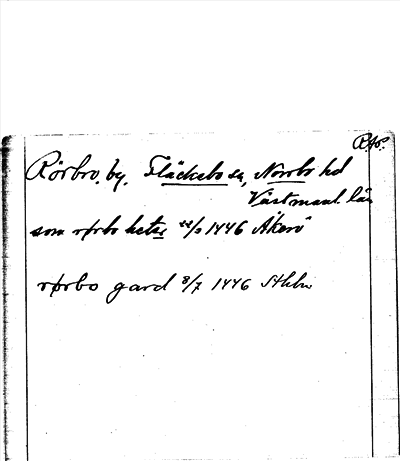 R.ap.
Rörbo, by, Fläckebo sn, Norrbo hd
Västmanl. län
som rørbo heter 22/2 1446 Åkerö
rørbo gard 8/7 1446 Sthlm